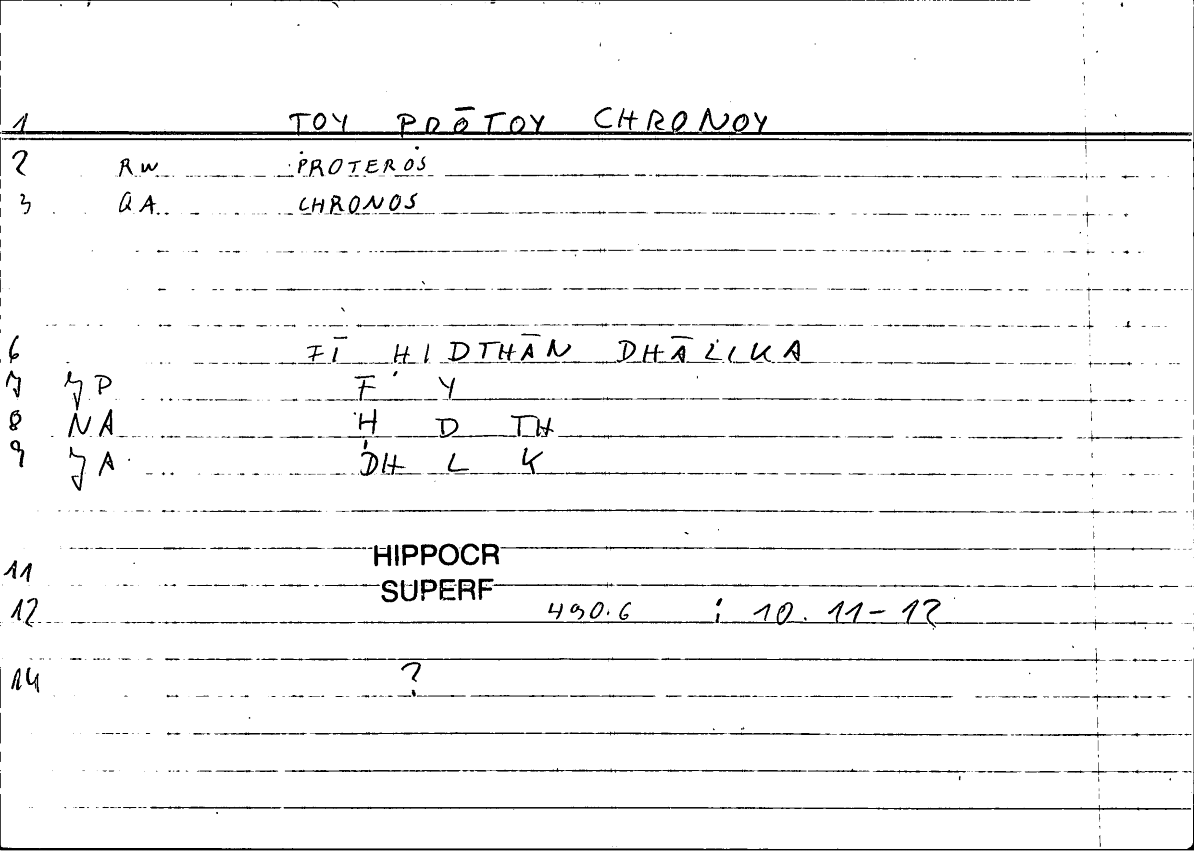 1 TOY PRŌTOY CHRONOY
2 RW PROTEROS
3 QA CHRONOS
6 FĪ HIDTHĀN DHĀLIKA
7 YP F Y
8 NA H D TH
9 YA DH L K
11 HIPPOCR
SUPERF
12 490.6 ; 10. 11-12
14 ?